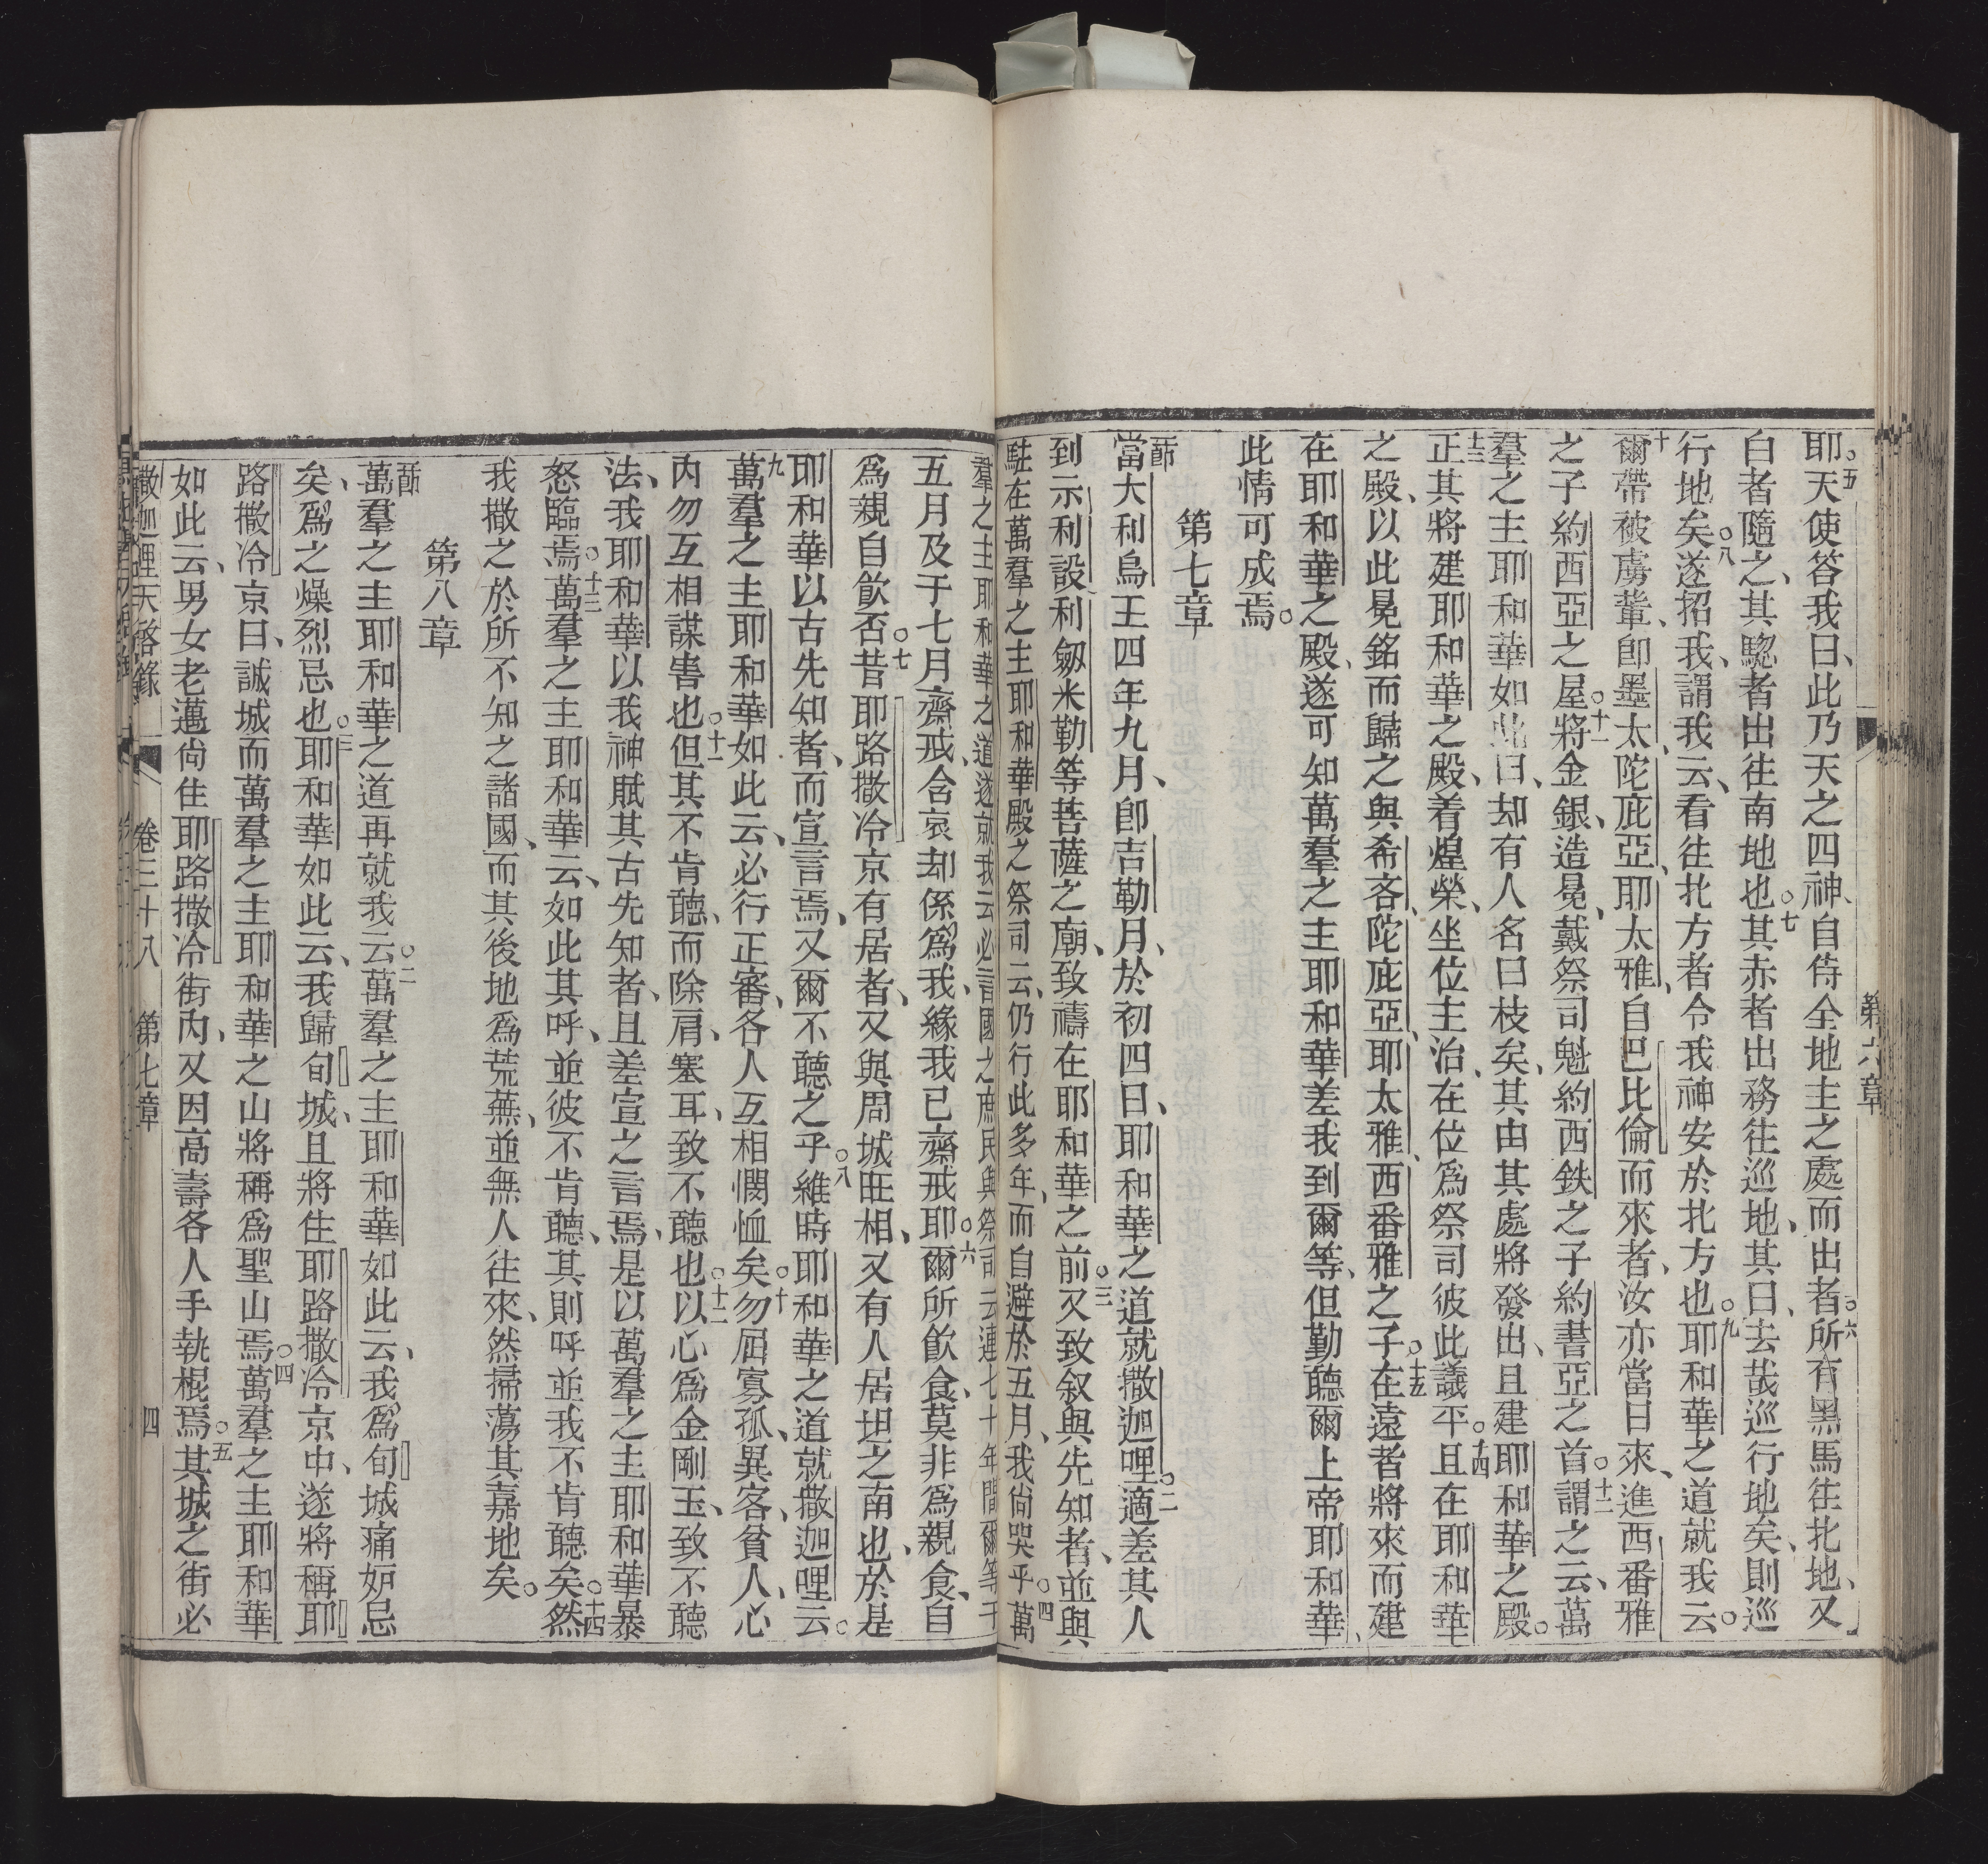 第六章
耶○五天使答我曰、此乃天之四神、自侍全地主之處而出者○六所有黑馬往北地、又
白者隨之、其驄者出往南地也○七其赤者出務往巡地、其曰、去哉巡行地矣、則巡
行地矣○八遂招我、謂我云、看往北方者令我神安於北方也○九耶和華之道就我云○
十爾帶被虜輩、卽墨太、陀庇亞、耶太雅、自巴比倫而來者、汝亦當日來、進西番雅
之子約西亞之屋○十一將金銀、造冕、戴祭司魁約西鉄之子約書亞之首○十二謂之云、萬
羣之主耶和華如此曰、却有人名曰枝矣、其由其處將發出、且建耶和華之殿○
十三正其將建耶和華之殿、着煌榮、坐位主治、在位爲祭司彼此議平○十四且在耶和華
之殿、以此冕銘而歸之與希吝、陀庇亞、耶太雅、西番雅之子○十五在遠者將來而建
在耶和華之殿、遂可知萬羣之主耶和華差我到爾等、但勤聽爾上帝耶和華、
此情可成焉○
第七章
一節當大利烏王四年九月、卽吉勒月、於初四日、耶和華之道就撒迦哩○二適差其人
到示利設利劔米勒等菩薩之廟、致禱在耶和華之前○三又致叙與先知者、並與
駐在萬羣之主耶和華殿之祭司云、仍行此多年、而自避於五月、我尙哭乎○四萬
羣之主耶和華之道遂就我云、必言國之庶民與祭司云連七十年間爾等于
五月及于七月齋戒、含哀却係爲我、緣我已齋戒耶○六爾所飮食、莫非爲親食、自
爲親自飮否○七昔耶路撒冷京有居者、又與周城旺相、又有人居坦之南也、於是
耶和華以古先知者、而宣言焉、又爾不聽之乎○八維時耶和華之道就撒迦哩云○
九萬羣之主耶和華如此云、必行正審、各人互相憫恤矣○十勿屈寡孤、異客、貧人、心
內勿互相謀害也○十一但其不肯聽、而除肩、塞耳、致不聽也○十二以心爲金剛玉、致不聽
法、我耶和華以我神賦其古先知者、且差宣之言焉、是以萬羣之主耶和華暴
怒臨焉○十三萬羣之主耶和華云、如此其呼、並彼不肯聽、其則呼並我不肯聽矣○十四然
我撒之於所不知之諸國、而其後地爲荒蕪、並無人往來、然掃蕩其嘉地矣○
第八章
一節萬羣之主耶和華之道再就我云○二萬羣之主耶和華如此云、我爲旬城痛妒忌
矣、爲之燥烈忌也○三耶和華如此云、我歸旬城、且將住耶路撒冷京中、遂將稱耶
路撒冷京曰、誠城而萬羣之主耶和華之山將稱爲聖山焉○四萬羣之主耶和華
如此云、男女老邁尙住耶路撒冷街內、又因高壽各人手執棍焉○五其城之街必
撒迦哩天啓錄 卷三十八 第七章 四